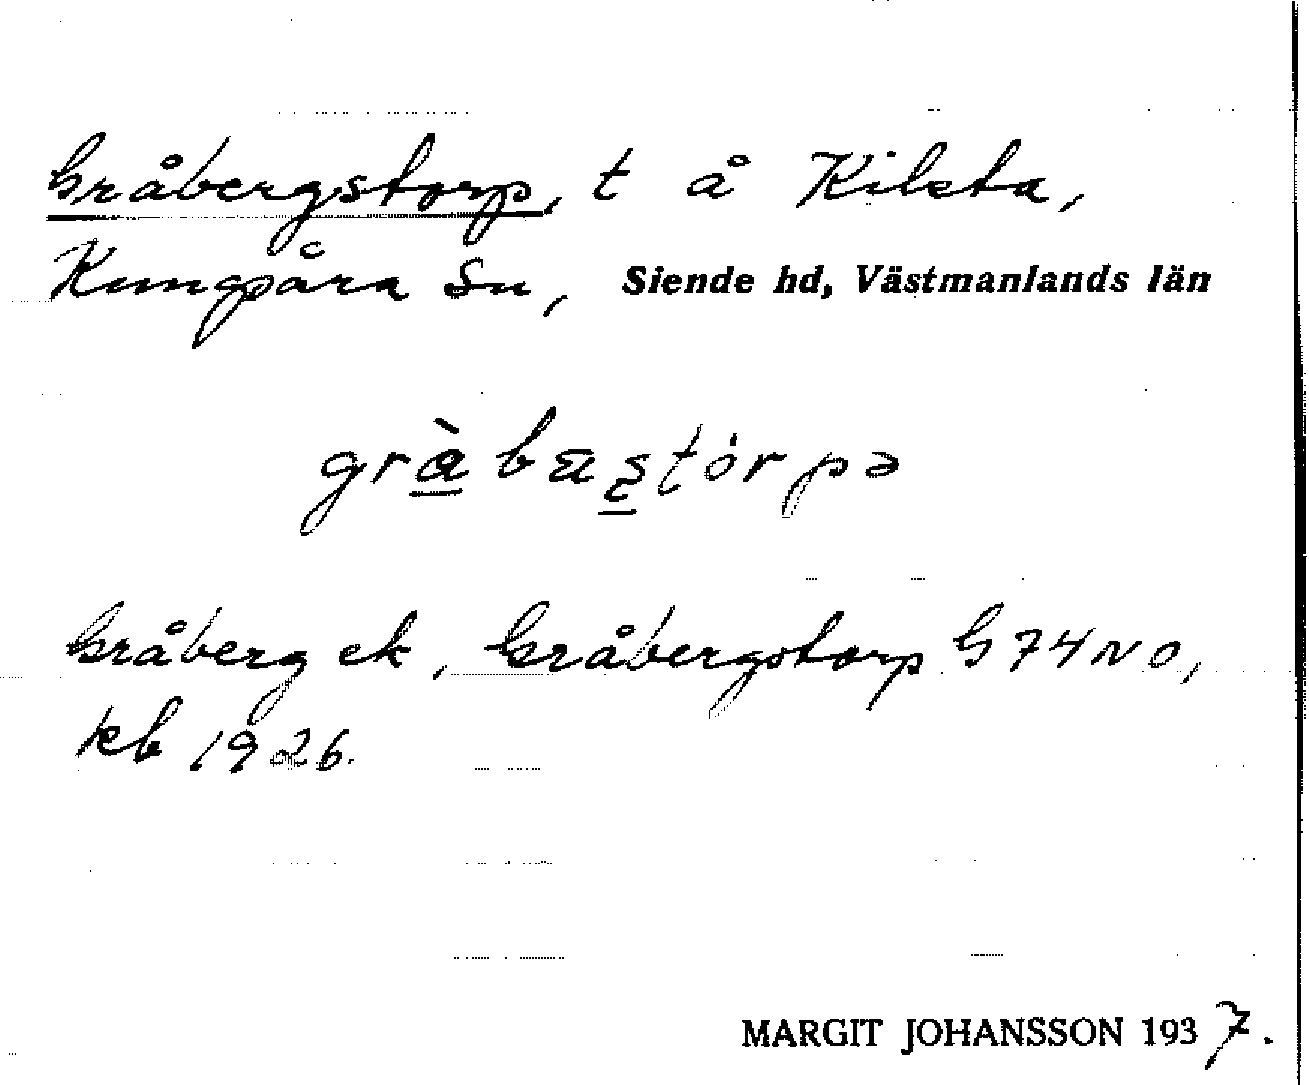 Gråbergstorp, t å Kilsta,
Kungsåra sn, Siende hd, Västmanlands län
gràbæstórpə
Gråberg ek, Gråbergstorp G 74 NO,
kb 1926.
MARGIT JOHANSSON 1937.